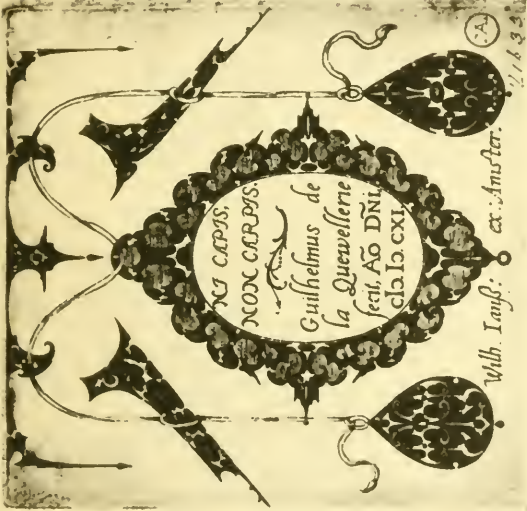 NI CAPIS.
NON CARPIS.
Guilhelmus de
la Quewellerie
fecit, Aō Dn̄i.
cIↄ Iↄ. CXI.
Wilh. Ianß: ex: Amster:
A